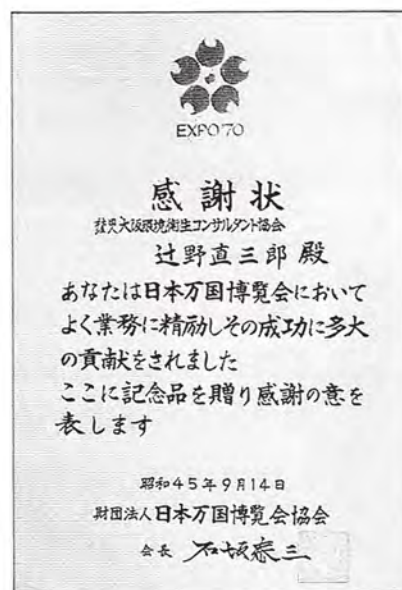 EXPO'70
感謝状
大阪環境衛生コンサルタント協会
辻野直三郎 殿
あなたは日本万国博覧会において
よく業務に精励しその成功に多大
の貢献をされました
ここに記念品を贈り感謝の意を
表します
昭和45年9月14日
財団法人日本万国博覧会協会
会長 石坂泰三